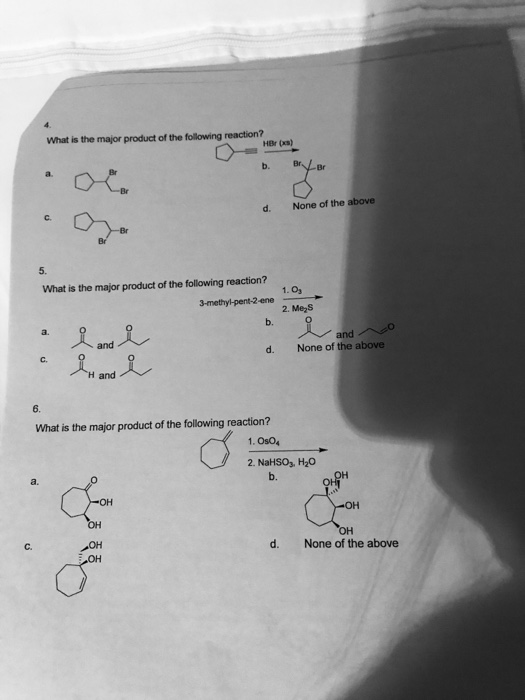 4.
What is the major product of the following reaction?
HBr (xs)
a.
Br
Br
b.
Br
Br
c.
Br
Br
d. None of the above
5.
What is the major product of the following reaction?
3-methyl-pent-2-ene
1. O₃
2. Me₂S
a.
O
and
O
b.
O
and
O
c.
O
H and
O
d. None of the above
6.
What is the major product of the following reaction?
1. OsO₄
2. NaHSO₃, H₂O
a.
O
OH
OH
b.
OH
OH
OH
OH
c.
OH
OH
d. None of the above